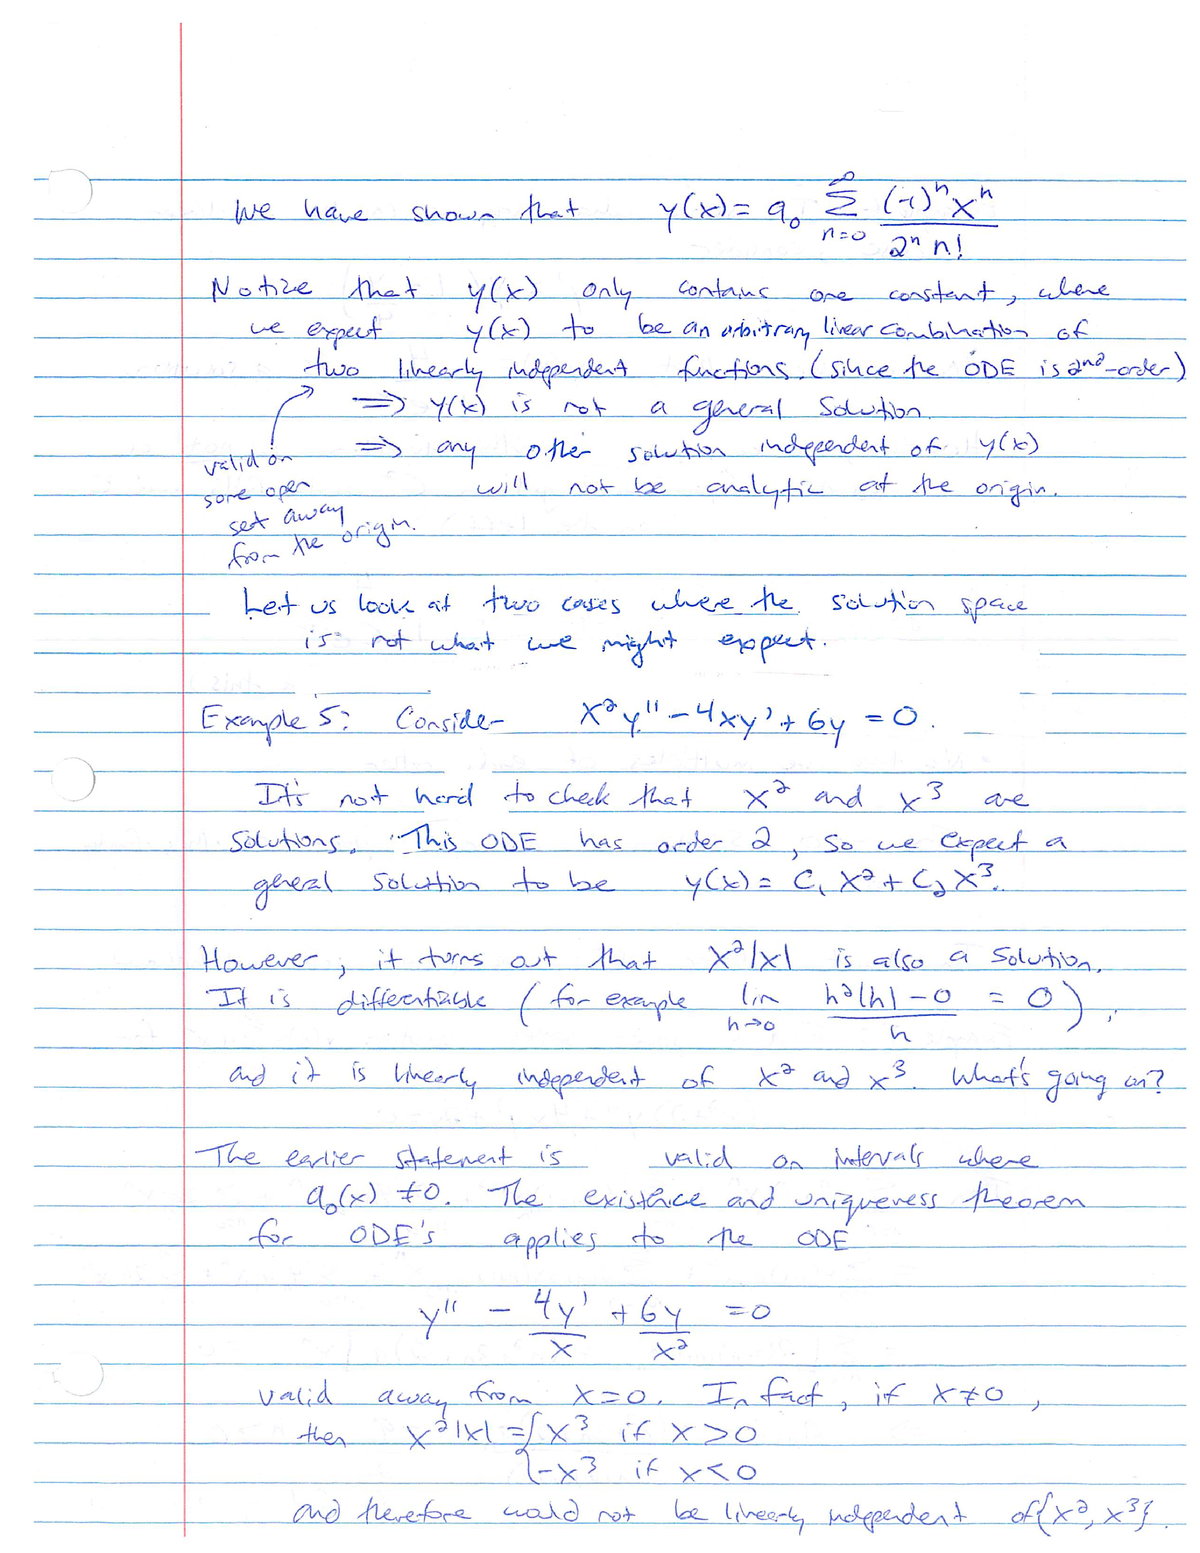 We have shown that y(x) = a₀ ∑_{n=0}^{∞} (-1)ⁿxⁿ / 2ⁿ n!
Notice that y(x) only contains one constant, where
we expect y(x) to be an arbitrary linear combination of
two linearly independent functions. (since the ODE is 2nd-order)
⇒ y(x) is not a general solution.
⇒ any other solution independent of y(x)
will not be analytic at the origin.
valid on
some open
set away
from the origin.
Let us look at two cases where the solution space
is not what we might expect.
Example 5: Consider x²y'' - 4xy' + 6y = 0.
It's not hard to check that x² and x³ are
solutions. This ODE has order 2, so we expect a
general solution to be y(x) = C₁x² + C₂x³.
However, it turns out that x²|x| is also a solution.
It is differentiable (for example lim_{h→0} h²|h| - 0 / h = 0),
and it is linearly independent of x² and x³. What's going on?
The earlier statement is valid on intervals where
a₀(x) ≠ 0. The existence and uniqueness theorem
for ODE's applies to the ODE
y'' - 4y'/x + 6y/x² = 0
valid away from x=0. In fact, if x≠0,
then x²|x| = { x³ if x>0
-x³ if x<0
and therefore would not be linearly independent of {x², x³}.